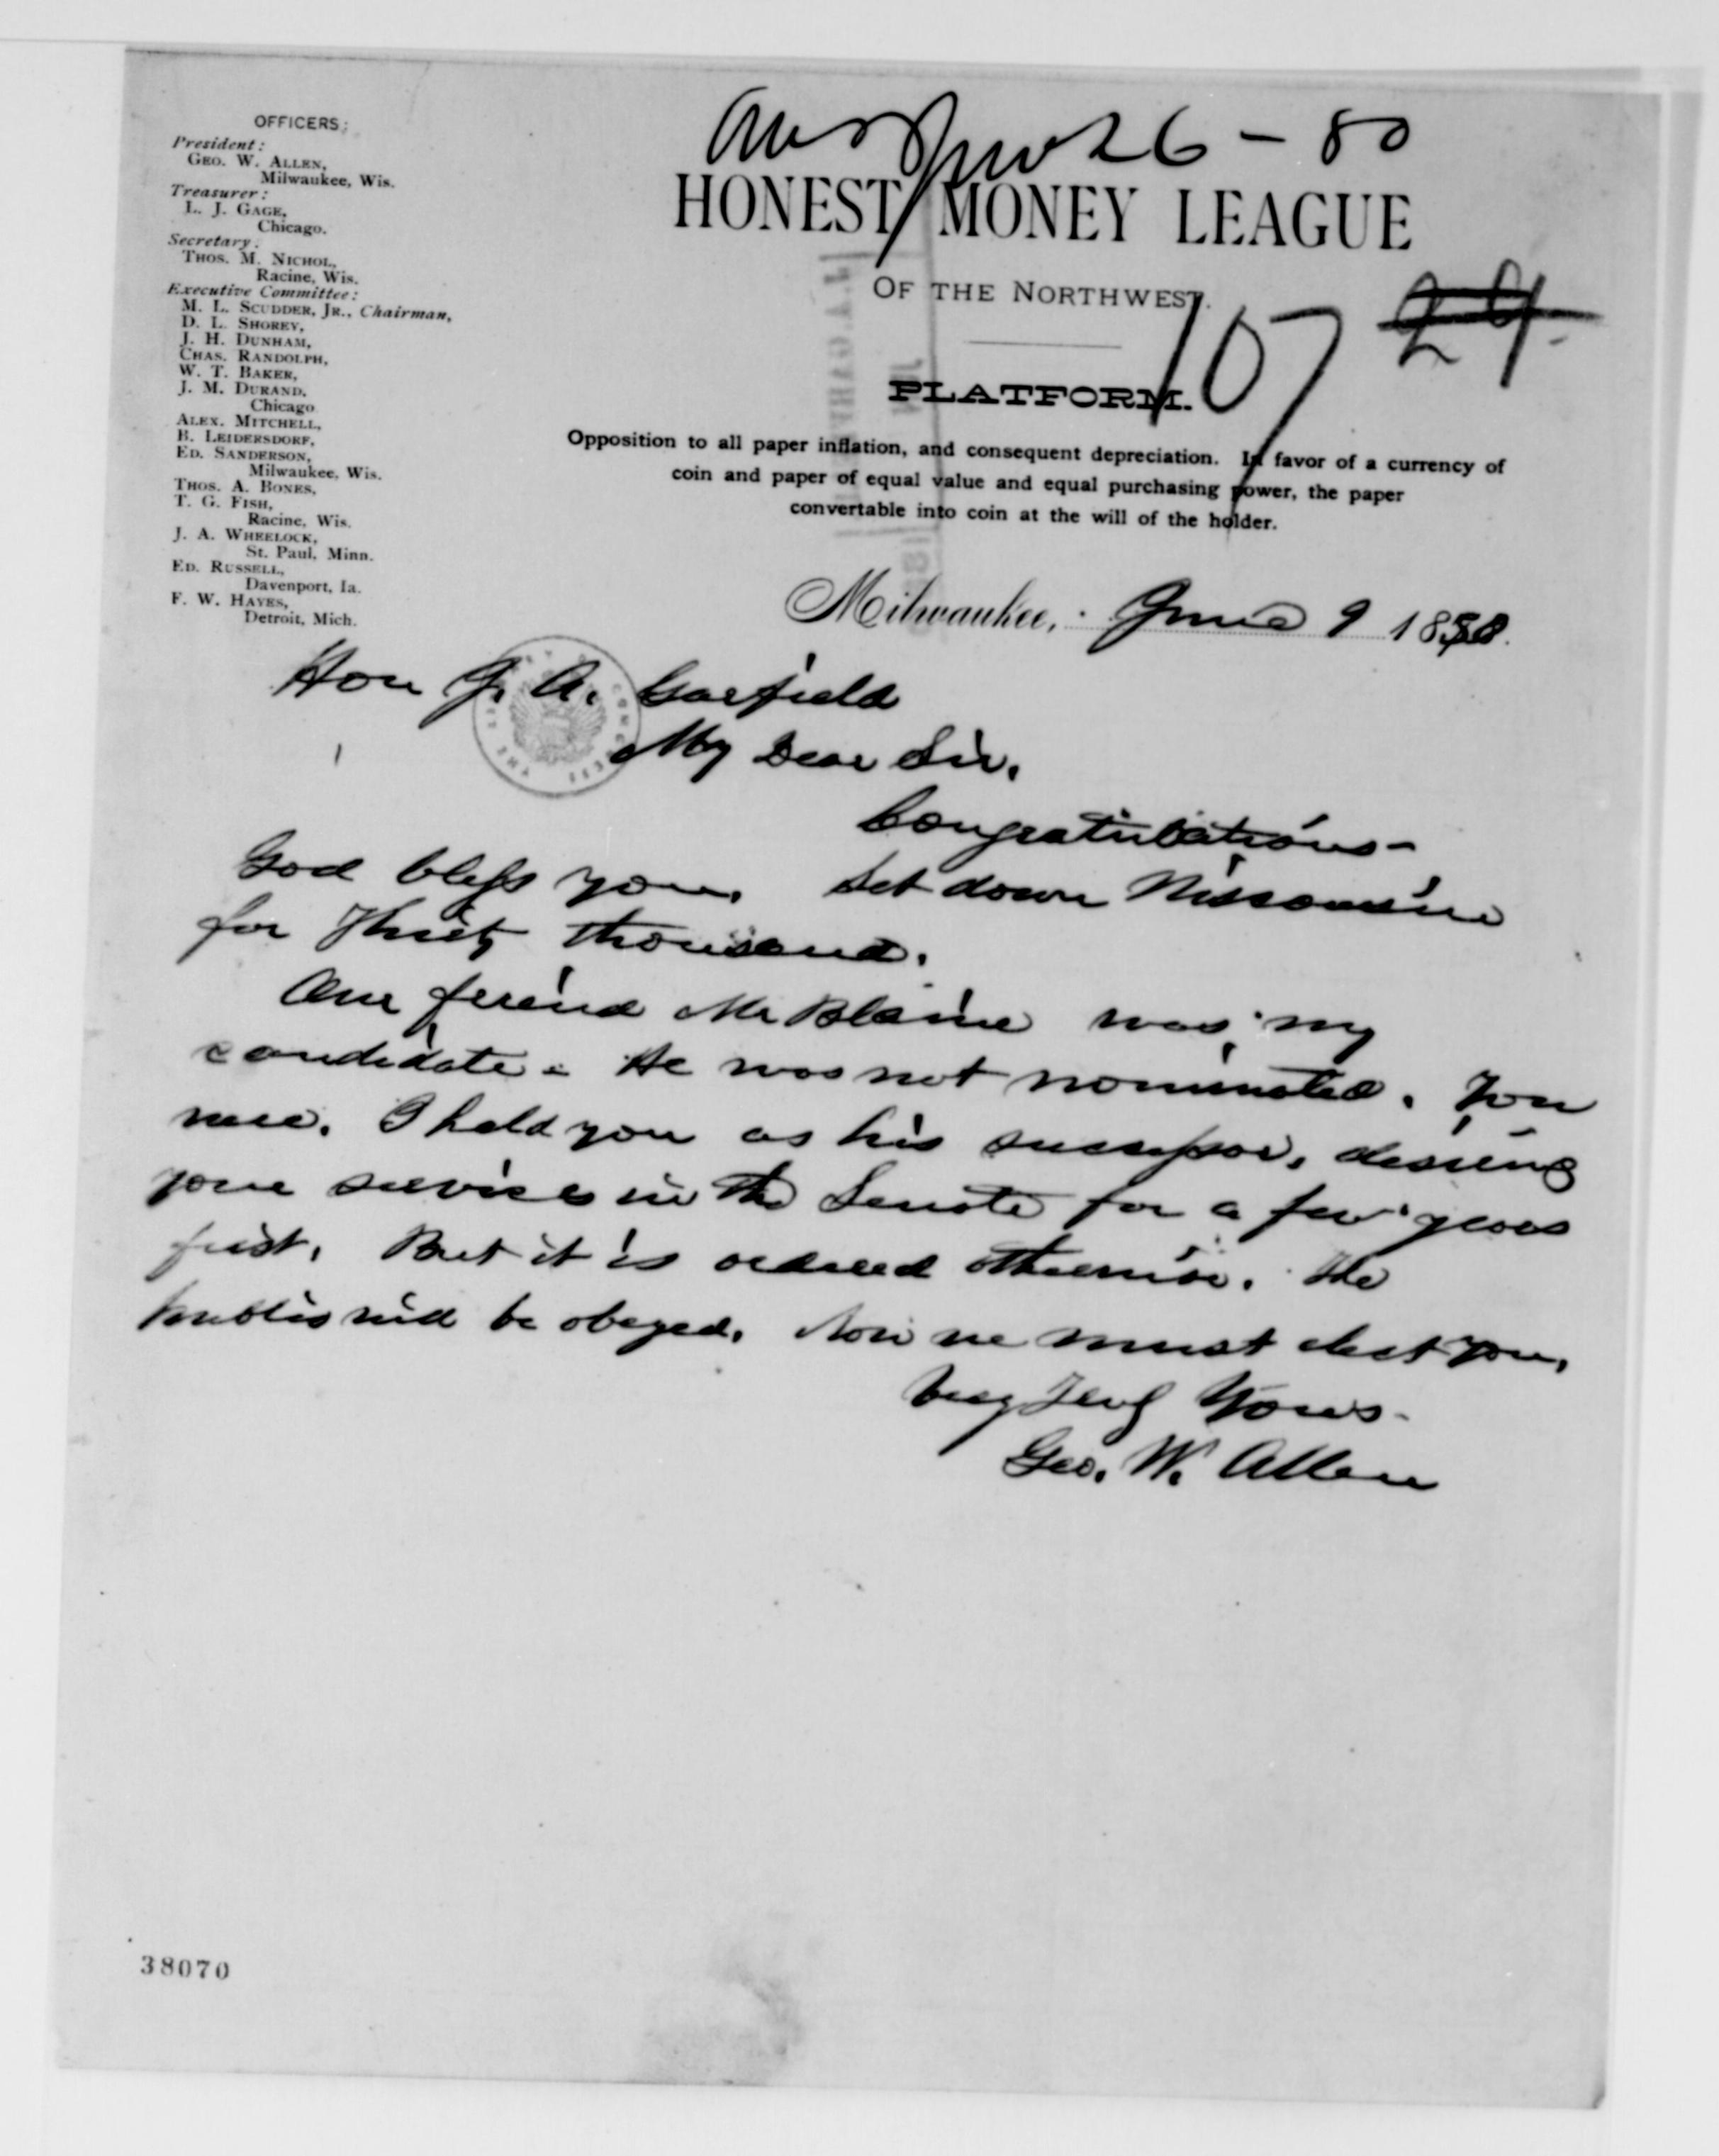 Ans June 26 - 80
OFFICERS:
President:
GEO. W. ALLEN,
Milwaukee, Wis.
Treasurer:
L. J. GAGE,
Chicago.
Secretary:
THOS. M. NICHOL,
Racine, Wis.
Executive Committee:
M. L. SCUDDER, JR., Chairman,
D. L. SHOREY,
J. H. DUNHAM,
CHAS. RANDOLPH,
W. T. BAKER,
J. M. DURAND,
Chicago
ALEX. MITCHELL,
B. LEIDERSDORF,
ED. SANDERSON,
Milwaukee, Wis.
THOS. A. BONES,
T. G. FISH,
Racine, Wis.
J. A. WHEELOCK,
St. Paul, Minn.
ED. RUSSELL,
Davenport, Ia.
F. W. HAYES,
Detroit, Mich.
HONEST MONEY LEAGUE
OF THE NORTHWEST.
107 24
PLATFORM.
Opposition to all paper inflation, and consequent depreciation. In favor of a currency of
coin and paper of equal value and equal purchasing power, the paper
convertable into coin at the will of the holder.
Milwaukee, June 9 1880.
Hon J. A. Garfield
My Dear Sir,
Congratulations-
God bless you. Set down Wisconsin
for Thirty thousand.
Our friend Mr Blaine was my
candidate. He was not nominated. You
were. I held you as his successor, desiring
your services in the Senate for a few years
first. But it is ordered otherwise. The
public will be obeyed. Now we must elect you.
Very Truly Yours-
Geo. W. Allen
38070